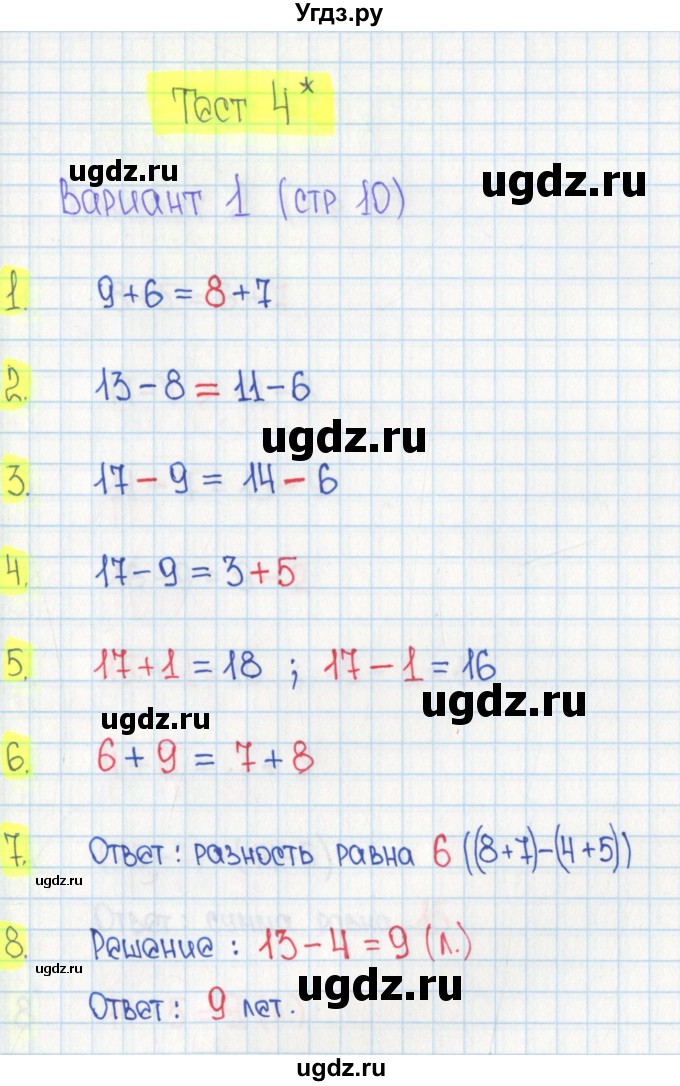 Угдз.ру
Тест 4*
ugdz.ru
ugdz.ru
Вариант 1 (стр 10)
1. 9+6 = 8+7
2. 13-8 = 11-6
ugdz.ru
3. 17-9 = 14-6
4. 17-9 = 3+5
5. 17+1 = 18 ; 17-1 = 16
ugdz.ru
ugdz.ru
6. 6+9 = 7+8
7. Ответ: разность равна 6 ((8+7)-(4+5))
ugdz.ru
8. Решение: 13-4=9 (л.)
ugdz.ru
ugdz.ru
Ответ: 9 лет.
ugdz.ru